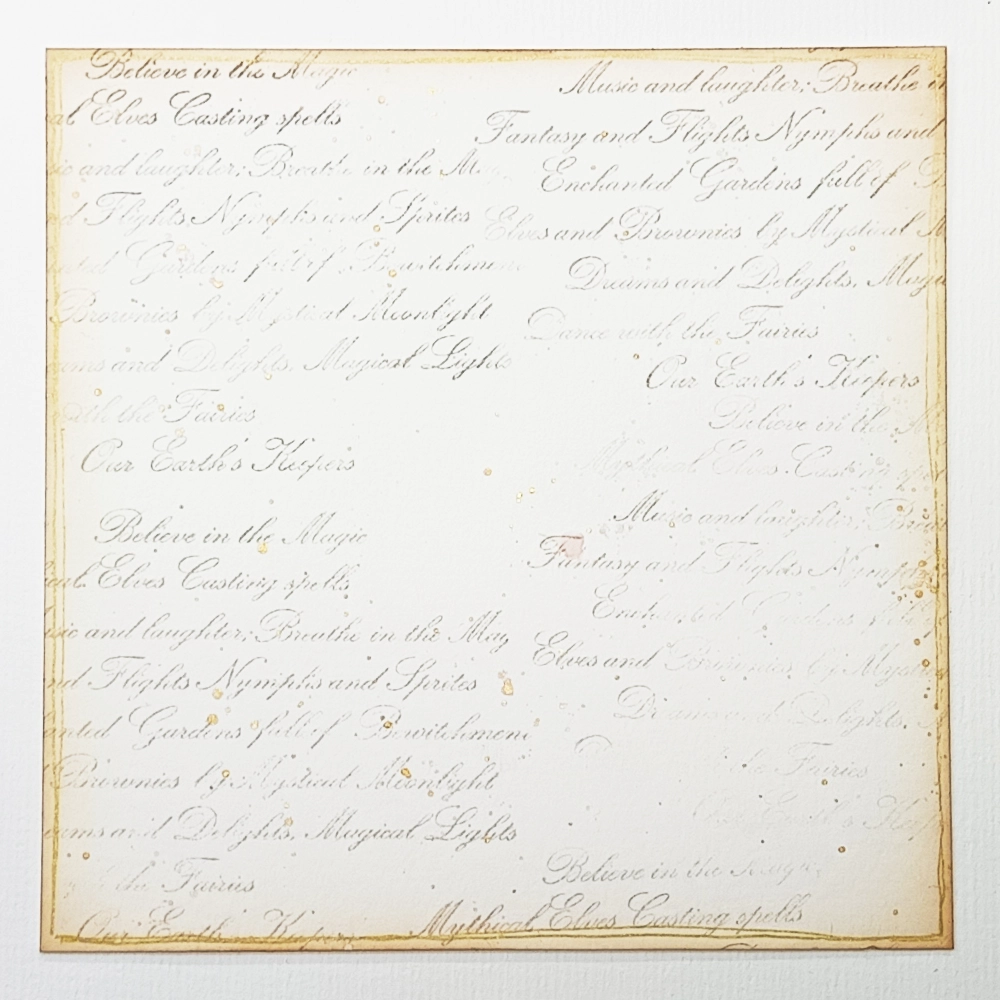 Believe in the Magic
Elves Casting spells
and laughter; Breathe in the
Flights Nymphs and Sprites
Gardens full of Bewitchment
Brownies by Mystical Moonlight
and Delights, Magical Lights
the Fairies
Our Earth's Keepers
Believe in the Magic
Elves Casting spells
and laughter; Breathe in the Mag
Flights Nymphs and Sprites
Gardens full of Bewitchment
Brownies by Mystical Moonlight
and Delights, Magical Lights
the Fairies
Our Earth's Keepers
Music and laughter; Breathe
Fantasy and Flights Nymphs and
Enchanted Gardens full of
Elves and Brownies by Mystical
Dreams and Delights, Magi
Dance with the Fairies
Our Earth's Keepers
Believe in the
Mythical Elves Casting
Music and laughter;
Fantasy and Flights Nymphs
Enchanted Gardens full
Elves and Brownies by
Dreams and Delights,
the Fairies
Our Earth's
Believe in the Magic
Mythical Elves Casting spells